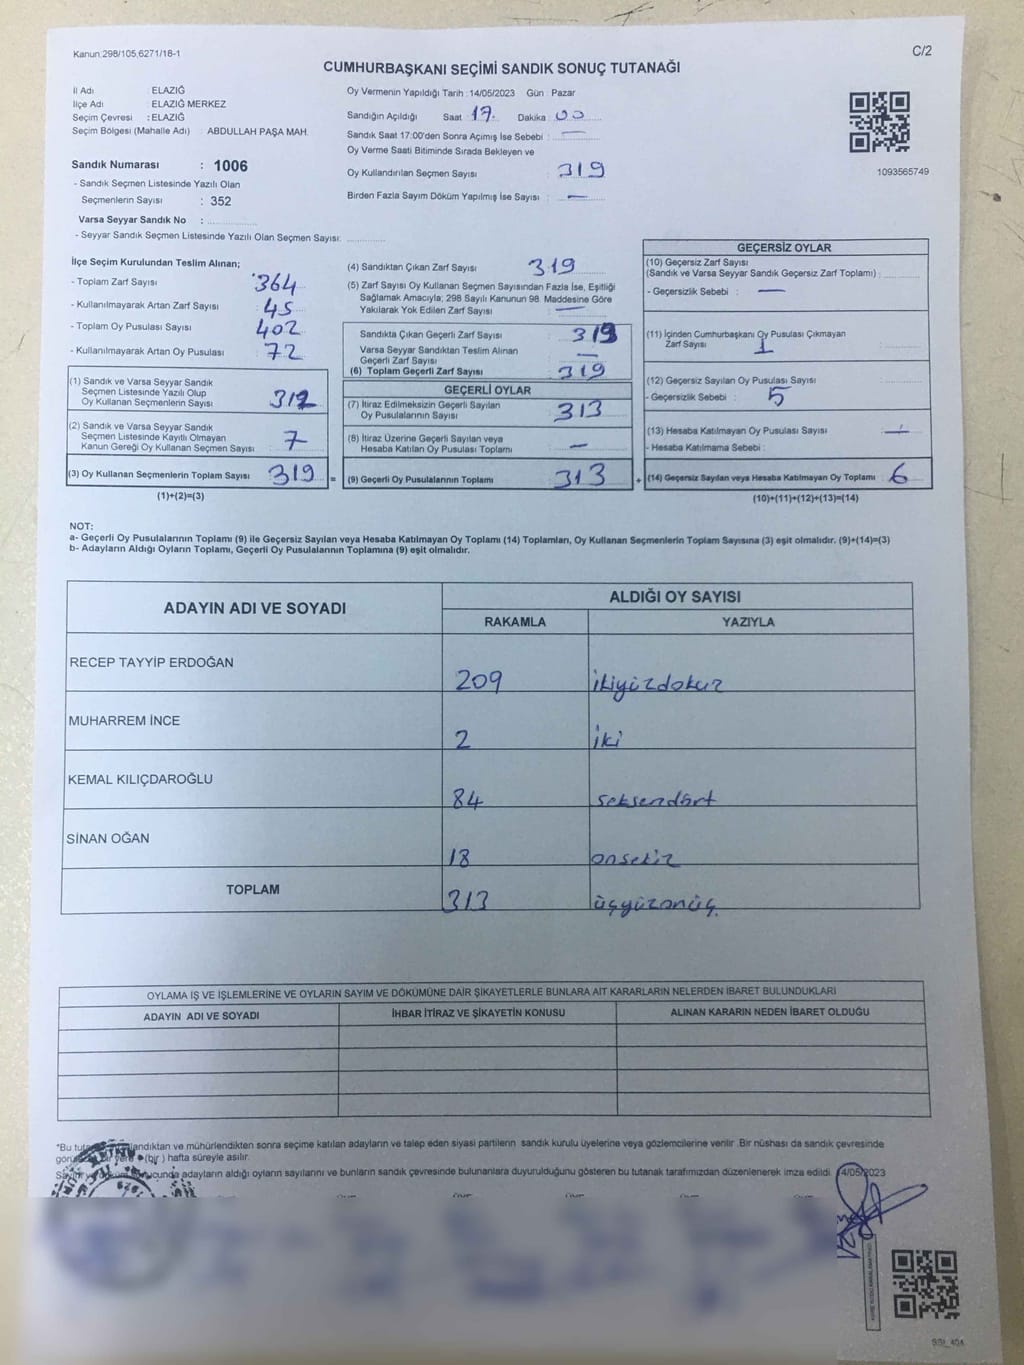 Kanun:298/105,6271/18-1
C/2
CUMHURBAŞKANI SEÇİMİ SANDIK SONUÇ TUTANAĞI
İl Adı : ELAZIĞ
İlçe Adı : ELAZIĞ MERKEZ
Seçim Çevresi : ELAZIĞ
Seçim Bölgesi (Mahalle Adı) : ABDULLAH PAŞA MAH.
Sandık Numarası : 1006
- Sandık Seçmen Listesinde Yazılı Olan
Seçmenlerin Sayısı : 352
Varsa Seyyar Sandık No :
- Seyyar Sandık Seçmen Listesinde Yazılı Olan Seçmen Sayısı:
Oy Vermenin Yapıldığı Tarih : 14/05/2023 Gün : Pazar
Sandığın Açıldığı Saat 17. Dakika : 00
Sandık Saat 17:00'den Sonra Açılmış İse Sebebi : —
Oy Verme Saati Bitiminde Sırada Bekleyen ve
Oy Kullandırılan Seçmen Sayısı : 319
Birden Fazla Sayım Döküm Yapılmış İse Sayısı : —
1093565749
İlçe Seçim Kurulundan Teslim Alınan;
- Toplam Zarf Sayısı : 364
- Kullanılmayarak Artan Zarf Sayısı : 45
- Toplam Oy Pusulası Sayısı : 402
- Kullanılmayarak Artan Oy Pusulası : 72
(1) Sandık ve Varsa Seyyar Sandık
Seçmen Listesinde Yazılı Olup
Oy Kullanan Seçmenlerin Sayısı : 312
(2) Sandık ve Varsa Seyyar Sandık
Seçmen Listesinde Kayıtlı Olmayan
Kanun Gereği Oy Kullanan Seçmen Sayısı : 7
(3) Oy Kullanan Seçmenlerin Toplam Sayısı : 319
(1)+(2)=(3)
(4) Sandıktan Çıkan Zarf Sayısı : 319
(5) Zarf Sayısı Oy Kullanan Seçmen Sayısından Fazla İse, Eşitliği
Sağlamak Amacıyla; 298 Sayılı Kanunun 98. Maddesine Göre
Yakılarak Yok Edilen Zarf Sayısı : —
Sandıkta Çıkan Geçerli Zarf Sayısı : 319
Varsa Seyyar Sandıktan Teslim Alınan
Geçerli Zarf Sayısı : —
(6) Toplam Geçerli Zarf Sayısı : 319
GEÇERLİ OYLAR
(7) İtiraz Edilmeksizin Geçerli Sayılan
Oy Pusulalarının Sayısı : 313
(8) İtiraz Üzerine Geçerli Sayılan veya
Hesaba Katılan Oy Pusulası Toplamı : —
(9) Geçerli Oy Pusulalarının Toplamı : 313
GEÇERSİZ OYLAR
(10) Geçersiz Zarf Sayısı
(Sandık ve Varsa Seyyar Sandık Geçersiz Zarf Toplamı) :
- Geçersizlik Sebebi : —
(11) İçinden Cumhurbaşkanı Oy Pusulası Çıkmayan
Zarf Sayısı : 1
(12) Geçersiz Sayılan Oy Pusulası Sayısı :
- Geçersizlik Sebebi : 5
(13) Hesaba Katılmayan Oy Pusulası Sayısı :
- Hesaba Katılmama Sebebi :
(14) Geçersiz Sayılan veya Hesaba Katılmayan Oy Toplamı : 6
(10)+(11)+(12)+(13)=(14)
NOT:
a- Geçerli Oy Pusulalarının Toplamı (9) ile Geçersiz Sayılan veya Hesaba Katılmayan Oy Toplamı (14) Toplamları, Oy Kullanan Seçmenlerin Toplam Sayısına (3) eşit olmalıdır. (9)+(14)=(3)
b- Adayların Aldığı Oyların Toplamı, Geçerli Oy Pusulalarının Toplamına (9) eşit olmalıdır.
ADAYIN ADI VE SOYADI ALDIĞI OY SAYISI
RAKAMLA YAZIYLA
RECEP TAYYİP ERDOĞAN 209 ikiyüzdokuz
MUHARREM İNCE 2 iki
KEMAL KILIÇDAROĞLU 84 seksendört
SİNAN OĞAN 18 onsekiz
TOPLAM 313 üçyüzonüç.
OYLAMA İŞ VE İŞLEMLERİNE VE OYLARIN SAYIM VE DÖKÜMÜNE DAİR ŞİKAYETLERLE BUNLARA AİT KARARLARIN NELERDEN İBARET BULUNDUKLARI
ADAYIN ADI VE SOYADI İHBAR İTİRAZ VE ŞİKAYETİN KONUSU ALINAN KARARIN NEDEN İBARET OLDUĞU
*Bu landıktan ve mühürlendikten sonra seçime katılan adayların ve talep eden siyasi partilerin sandık kurulu üyelerine veya gözlemcilerine verilir. Bir nüshası da sandık çevresinde
yere (bir) hafta süreyle asılır.
ucunda adayların aldığı oyların sayılarını ve bunların sandık çevresinde bulunanlara duyurulduğunu gösteren bu tutanak tarafımızdan düzenlenerek imza edildi. 14/05/2023